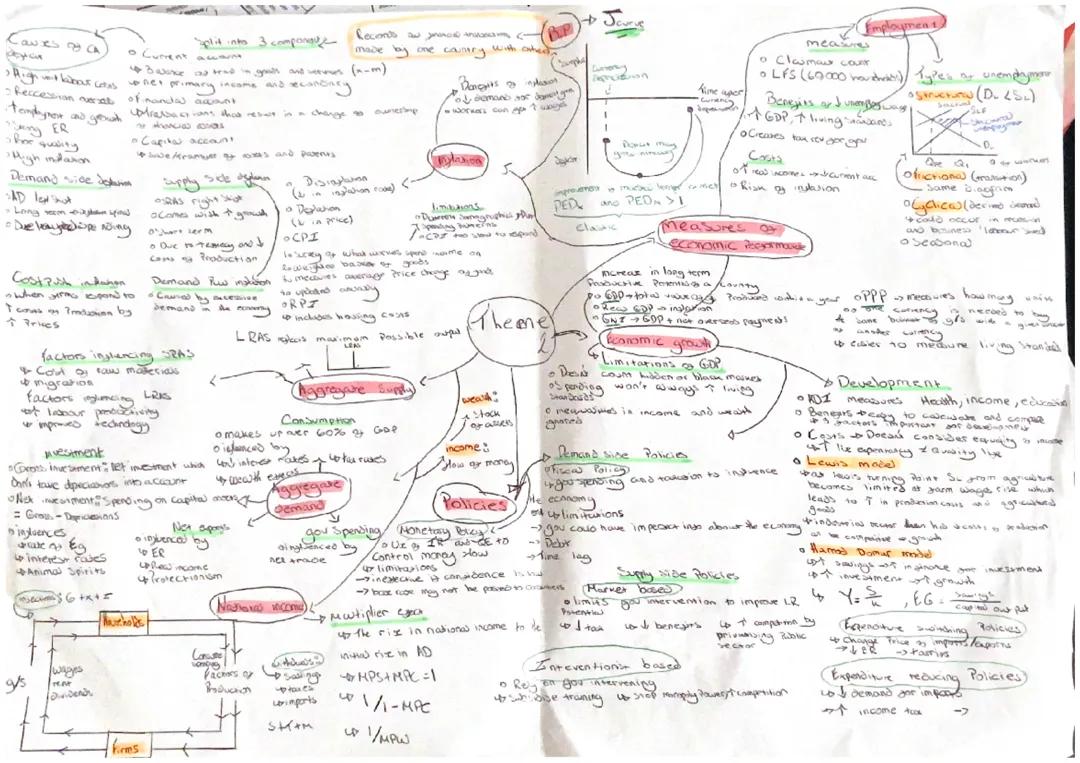 Causes of CA
deficit
High unit labour costs
Reccession overseas
employment and growth
strong ER
Poor quality
High inflation
Split into 3 components
Current account
Balance of trade in goods and services (x-m)
net primary income and secondary
Financial account
transactions that result in a change of ownership
of financial assets
Capital account
Sale/transfer of assets and patents
Records all financial transactions
made by one country with others
BoP
J curve
Currency
depreciation
Surplus
Time after
currency
depreciation
Deficit
Deficit may
grow initially
improvement is much longer run
PEDx and PEDm > 1
elastic
Employment
measures
Claimant count
LFS (60000 households)
Benefits of ↓ unemployment
↑ GDP, ↑ living standards
Creates tax rev for gov
Costs
↑ real incomes → ↓ current acc
Risk of inflation
Types of unemployment
Structural (DL < SL)
SLF
Structural
unemployment
DL
Qe Q1
Q of workers
Frictional (transition)
Same diagram
Cyclical (derived demand
could occur in recession
and business labour shed
Seasonal
Benefits of inflation
↓ demand for
workers can get ↑ wages
Inflation
Demand side deflation
AD left shift
Long term deflation spiral
Due to
Supply side deflation
SRAS right shift
Comes with ↑ growth
Short term
Due to ↑ efficiency and ↓
costs of Production
Disinflation
(↓ in inflation rate)
Deflation
(↓ in price)
CPI
survey of what families spend income on
weighted basket of goods
measures average price change of goods
updated annually
RPI
includes housing costs
limitations
Different demographics
spending patterns
CPI too slow to respond
Cost Push inflation
When firms respond to
↑ costs of Production by
↑ Prices
Demand Pull inflation
Caused by excessive
demand in the economy
Measures of
economic Performance
Theme
2
Increase in long term
Productive Potential of a country
GDP → total value of Produced within a year
Real GDP → inflation
GNI → GDP + net overseas payments
Economic growth
Limitations of GDP
Doesn't count hidden or black market
Spending won't always ↑ living
standards
inequalities in income and wealth
ignored
PPP → measures how many units
of one currency is needed to buy
same basket of g/s with a given unit of
another currency
easier to measure living standards
LRAS reflects maximum Possible output
LRAS
Aggregate Supply
Factors influencing SRAS
Cost of raw materials
migration
Factors influencing LRAS
↑ labour productivity
improved technology
Consumption
makes up over 60% of GDP
influenced by
interest rates
tax rates
wealth effects
wealth:
Stock
of assets
income:
flow of money
Investment
Gross investment: investment which
don't take depreciations into account
Net investment: Spending on capital assets
= Gross - Depreciations
influences
rate of Eg
interest rates
Animal Spirits
Aggregate
Demand
Net exports
influenced by
ER
Real income
Protectionism
gov Spending
influenced by
net trade
Policies
Monetary Policy
Use of IR and QE to
control money flow
limitations
→ ineffective if confidence is low
→ base rate may not be passed to consumers
Demand side Policies
Fiscal Policy
gov spending and taxation to influence
the economy
limitations
→ gov could have imperfect info about the economy
→ Debt
→ Time lag
Supply side Policies
Market based
limits gov intervention to improve LR
Potential
↓ tax
↓ benefits
↑ competition by
privatising Public
sector
Interventionist based
Rely on gov intervening
Subsidise training
Stop monopoly power/↑ competition
Development
HDI measures Health, income, education
Benefits → easy to calculate and compare
factors important for development
Costs → Doesn't consider equality of income
↑ life expectancy ≠ quality life
Lewis model
at lewis turning Point SL from agriculture
becomes limited as farm wages rise which
leads to ↑ in production costs and agricultural
goods
industrial sector
be competitive → growth
Harrod Domar model
↑ savings → finance for investment
↑ investment → ↑ growth
Y = S/K , EG = savings/capital output
Expenditure switching Policies
Change Price of imports/exports
↓ ER → tariffs
Expenditure reducing Policies
↓ demand for imports
↑ income tax →
National income
Multiplier effect
The rise in national income to the
initial rise in AD
MPS + MPC = 1
1/1-MPC
1/MPW
Injections: G + X + I
Households
g/s
Wages
rent
dividends
Factors of
Production
Firms
withdrawals:
Savings
taxes
imports
S + T + M